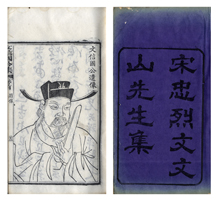 文信國公遺像
宋忠烈文文
山先生集